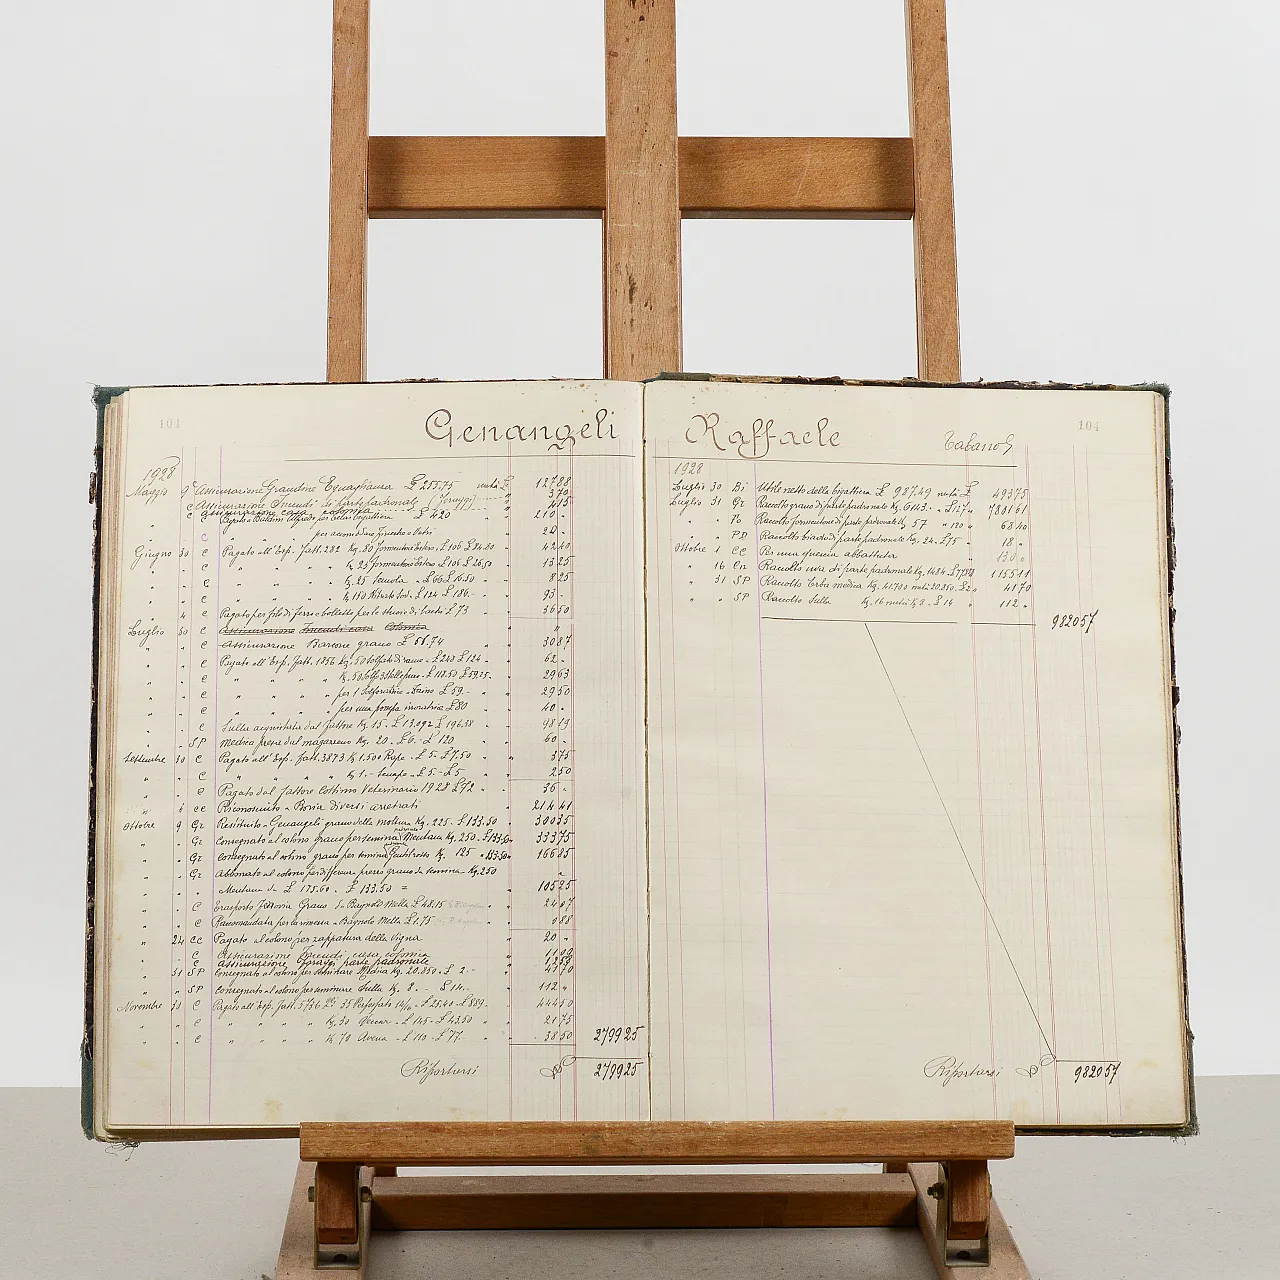 104
Genangeli
1928
Maggio 9 C Assicurazione Grandine Tquaghiara £ 255.75 metà £ 127 88
C Assicurazione Incendi di parte padronale (Foraggi) " 3 70
C assicurazione casa colonica " 4 15
" " C Pagato a Baldini Alfredo per telai bigattiera £ 420 " 210 -
C " " per accomodare finestre e vetri " 20 -
Giugno 30 C Pagato all'Esp. Fatt. 282 Kg. 80 formentone estero £ 106 £ 84.80 " 42 40
" " C " " " " Kg 25 formentone Estero £ 106 £ 26,50 " 13 25
" " C " " " " Kg. 25 Semola £ 66 £ 16.50 " 8 25
" " C " " " " Kg 150 Nitrato Sod. £ 124 £ 186.- " 93 -
" 4 C Pagato per filo di ferro e bollette per le stuoie di bachi £ 73 " 36 50
Luglio 30 C Assicurazione Incendi casa Colonica " "
" " C Assicurazione Barcone grano £ 61.74 " 30 87
" " C Pagato all'Esp. Fatt. 1856 Kg. 50 Solfato di rame £ 248 £ 124 " 62 -
" " C " " " " Kg. 50 Solfo £ 118.50 £ 59.25 " 29 63
" " C " " " " per 1 Solforatrice a zaino £ 59.- " 29 50
" " C " " " " per una pompa irroratrice £ 80 " 40 -
" " C Sulla acquistata dal fattore Kg. 15.- £ 13.092 £ 196.38 " 98 19
" " SP Medica presa dal magazzeno Kg. 20. £ 6.- £ 120 " 60 -
Settembre 30 C Pagato all'Esp. Fatt. 3873 Kg 1.500 Rape - £ 5.- £ 7.50 " 3 75
" " C " " " " Kg 1.- Senape - £ 5.- £ 5.- " 2 50
" " C Pagato dal fattore Cottimo Veterinario 1928 £ 72 - " 36 -
" 6 CC Riconosciuto a Boria diversi arretrati 214 41
Ottobre 9 Gr Restituito a Genangeli grano della molitura Kg. 225 - £ 133.50 " 300 35
" " Gr Consegnato al colono grano per semina Mentana Kg. 250 - £ 133.50 " 333 75
" " Gr Consegnato al colono grano per semina Gentilrosso Kg. 125 " 133.50 " 166 85
" " Gr Abbonato al colono per differenza prezzo grano da semina Kg. 250
" " " Mentana da £ 175.60 - £ 133.50 = " 105 25
" " C Trasporto Ferrovia Grano da Bagnolo Mella £ 48.15 " 24 07
" " C Raccomandata per la rimessa a Bagnolo Mella £ 1.75 " 0 88
" 24 CC Pagato al colono per zappatura della vigna " 20 -
" " C Assicurazione Incendi, casa colonica
" " C assicurazione Foraggi parte padronale
" 31 SP Consegnato al colono per seminare Medica Kg. 20.850 - £ 2.- " 41 70
" " SP Consegnato al colono per seminare Sulla Kg. 8.- - £ 14.- " 112 "
Novembre 30 C Pagato all'Esp. Fatt. 5736 35 Perfosfato 14/16 - £ 25.40 - £ 889.- " 444 50
" " C " " " " Kg. 30 - £ 145 - £ 43.50 " 21 75
" " C " " " " Kg 70 Avena - £ 110 - £ 77.- " 38 50 2799 25
Riportarsi 2799 25
Raffaele Tabano
104
1928
Luglio 30 Bi Utile netto della bigattiera £ 987.49 metà £ 493 75
Luglio 31 Gr Raccolto grano di parte padronale Kg. 6143 - £ 127 " 7801 61
" " Fo Raccolto formentone di parte padronale Kg 57 " 120 " 68 40
" " PD Raccolto biade di parte padronale Kg. 24. £ 75 " 18 "
Ottobre 1 CC Per una quercia abbattuta 130 "
" 16 Cn Raccolto uva di parte padronale Kg. 1484 £ " 1155 11
" 31 SP Raccolto Erba medica Kg. 41.700 metà 20.850 £ 2 " 41 70
" " SP Raccolto Sulla Kg. 16 metà Kg 8 - £ 14 " 112 "
9820 57
Riportarsi 9820 57